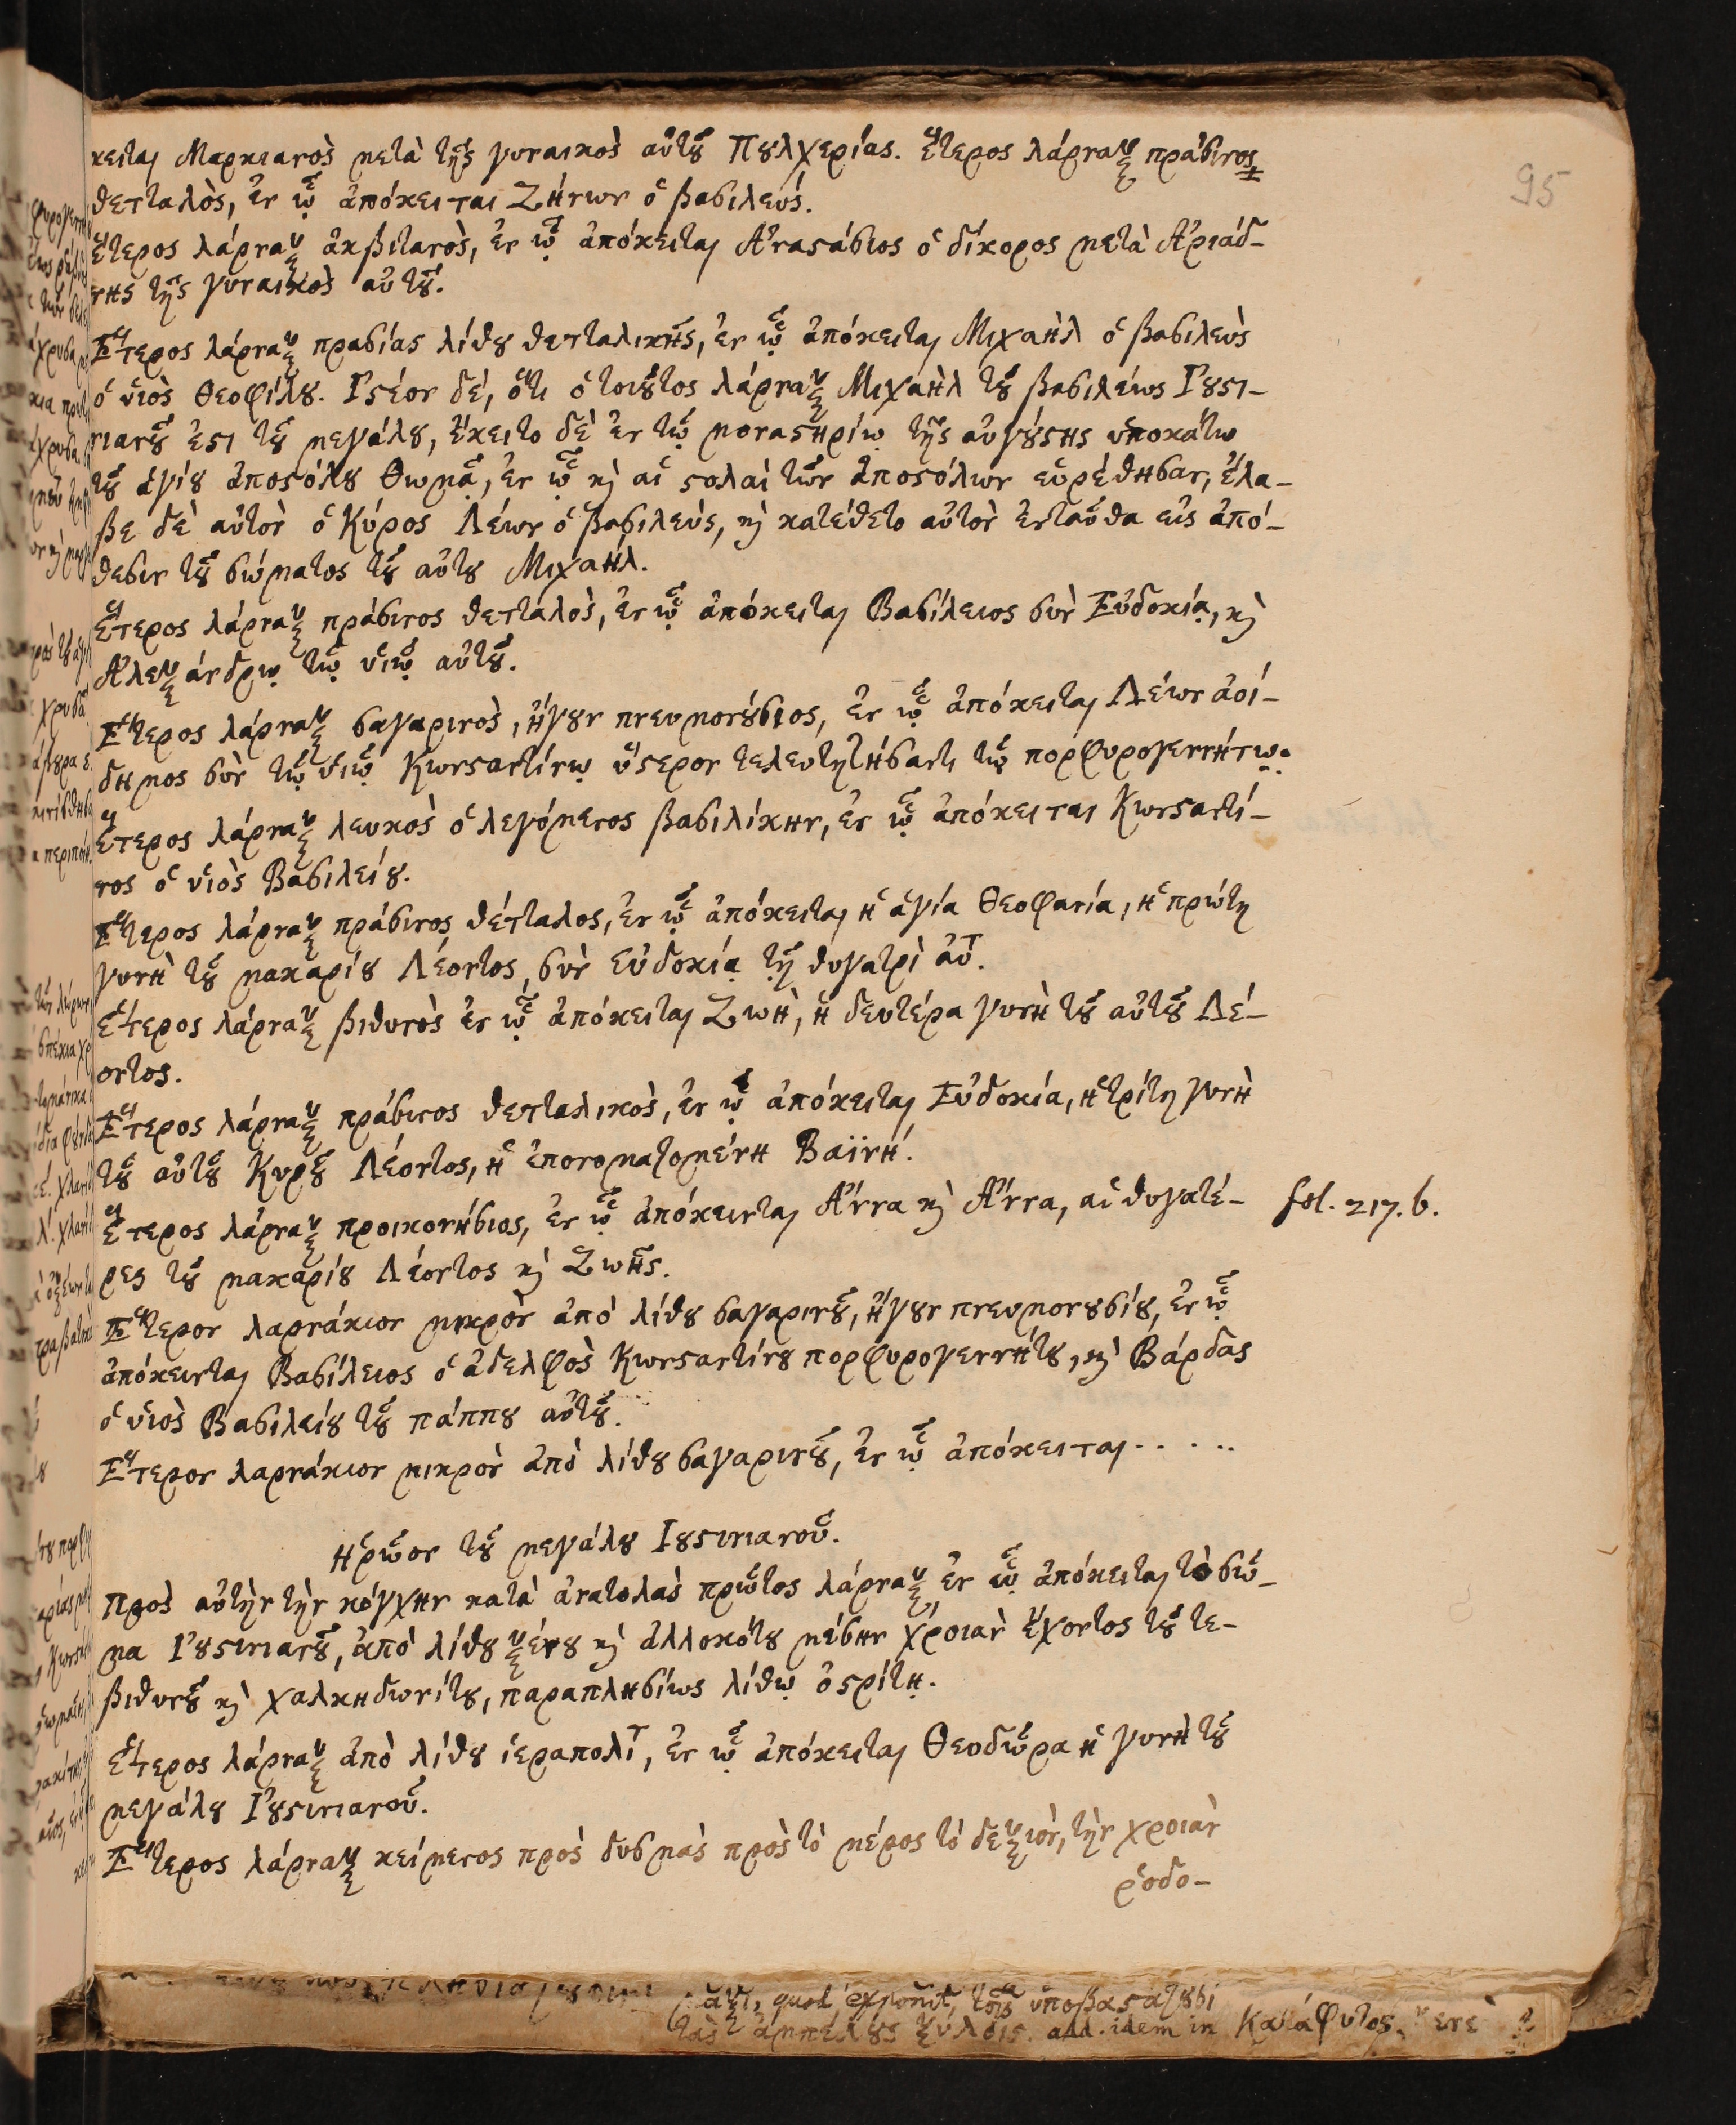 κειται Μαρκιανὸς μετὰ τῆς γυναικὸς αὐτοῦ Πουλχερίας. ἕτερος λάρναξ πράσινος
θετταλὸς, ἐν ᾧ ἀπόκειται Ζήνων ὁ βασιλεύς.
ἕτερος λάρναξ ἀκβιτανὸς, ἐν ᾧ ἀπόκειται Ἀναστάσιος ὁ δίκορος μετὰ Ἀριάδ-
νης τῆς γυναικὸς αὐτοῦ.
Ἕτερος λάρναξ πρασίας λίθου θετταλικῆς, ἐν ᾧ ἀπόκειται Μιχαὴλ ὁ βασιλεὺς
ὁ υἱὸς Θεοφίλου. Ἰστέον δέ, ὅτι ὁ τοιοῦτος λάρναξ Μιχαὴλ τοῦ βασιλέως Ἰουστι-
νιανοῦ ἐστι τοῦ μεγάλου, ἔκειτο δὲ ἐν τῷ μοναστηρίῳ τῆς αὐγούστης ὑποκάτω
τοῦ ἁγίου ἀποστόλου Θωμᾶ, ἐν ᾧ καὶ αἱ στολαὶ τῶν ἀποστόλων εὑρέθησαν, ἔλα-
βε δὲ αὐτὸν ὁ Κύρος Λέων ὁ βασιλεύς, καὶ κατέθετο αὐτὸν ἐνταῦθα εἰς ἀπό-
θεσιν τοῦ σώματος τοῦ αὐτοῦ Μιχαήλ.
ἕτερος λάρναξ πράσινος θετταλὸς, ἐν ᾧ ἀπόκειται Βασίλειος σὺν Εὐδοκίᾳ, καὶ
Ἀλεξάνδρῳ τῷ υἱῷ αὐτοῦ.
Ἕτερος λάρναξ σαγαρινὸς, ἤγουν πνευμονούσιος, ἐν ᾧ ἀπόκειται Λέων ἀοί-
δημος σὺν τῷ υἱῷ Κωνσταντίνῳ ὕστερον τελευτητήσαντι τῷ πορφυρογεννήτῳ.
ἕτερος λάρναξ λευκὸς ὁ λεγόμενος βασιλίκην, ἐν ᾧ ἀπόκειται Κωνσταντῖ-
νος ὁ υἱὸς Βασιλείου.
Ἕτερος λάρναξ πράσινος θέτταλος, ἐν ᾧ ἀπόκειται ἡ ἁγία Θεοφανία, ἡ πρώτη
γυνὴ τοῦ μακαρίου Λέοντος, σὺν Εὐδοκίᾳ τῇ θυγατρὶ αὐτ.
ἕτερος λάρναξ βιθυνὸς ἐν ᾧ ἀπόκειται Ζωὴ, ἡ δευτέρα γυνὴ τοῦ αὐτοῦ Λέ-
οντος.
Ἕτερος λάρναξ πράσινος θετταλικὸς, ἐν ᾧ ἀπόκειται Εὐδοκία, ἡ τρίτη γυνὴ
τοῦ αὐτοῦ Κυροῦ Λέοντος, ἡ ἐπονομαζομένη Βαϊνή.
ἕτερος λάρναξ προικονήσιος, ἐν ᾧ ἀπόκεινται Ἄννα καὶ Ἄννα, αἱ θυγατέ-
fol. 217. b.
ρες τοῦ μακαρίου Λέοντος καὶ Ζωῆς.
Ἕτερον λαρνάκιον μικρὸν ἀπὸ λίθου σαγαρινοῦ, ἤγουν πνευμονουσίου, ἐν ᾧ
ἀπόκεινται Βασίλειος ὁ ἀδελφὸς Κωνσταντίνου πορφυρογεννήτου, καὶ Βάρδας
ὁ υἱὸς Βασιλείου τοῦ πάππου αὐτοῦ.
Ἕτερον λαρνάκιον μικρὸν ἀπὸ λίθου σαγαρινοῦ, ἐν ᾧ ἀπόκειται . . . . .
Ἡρῶον τοῦ μεγάλου Ἰουστινιανοῦ.
Πρὸς αὐτὴν τὴν κόγχην κατὰ ἀνατολὰς πρῶτος λάρναξ, ἐν ᾧ ἀπόκειται τὸ σῶ-
μα Ἰουστινιανοῦ, ἀπὸ λίθου ξένου καὶ ἀλλοκότου μέσην χροιὰν ἔχοντος τοῦ τε-
βιθυνοῦ καὶ χαλκηδωνίτου, παραπλησίως λίθῳ ὀστρίτῃ.
ἕτερος λάρναξ ἀπὸ λίθου ἱεραπολίτ, ἐν ᾧ ἀπόκειται Θεοδώρα ἡ γυνὴ τοῦ
μεγάλου Ἰουστινιανοῦ.
Ἕτερος λάρναξ κείμενος πρὸς δυσμὰς πρὸς τὸ μέρος τὸ δεξιὸν, τὴν χροιὰν
ῥοδο-
95
quod exponit, τοῖς ὑποβαστάζουσι
τὰς ἀμπέλους ξύλοις. add. idem in Κατάφυτος